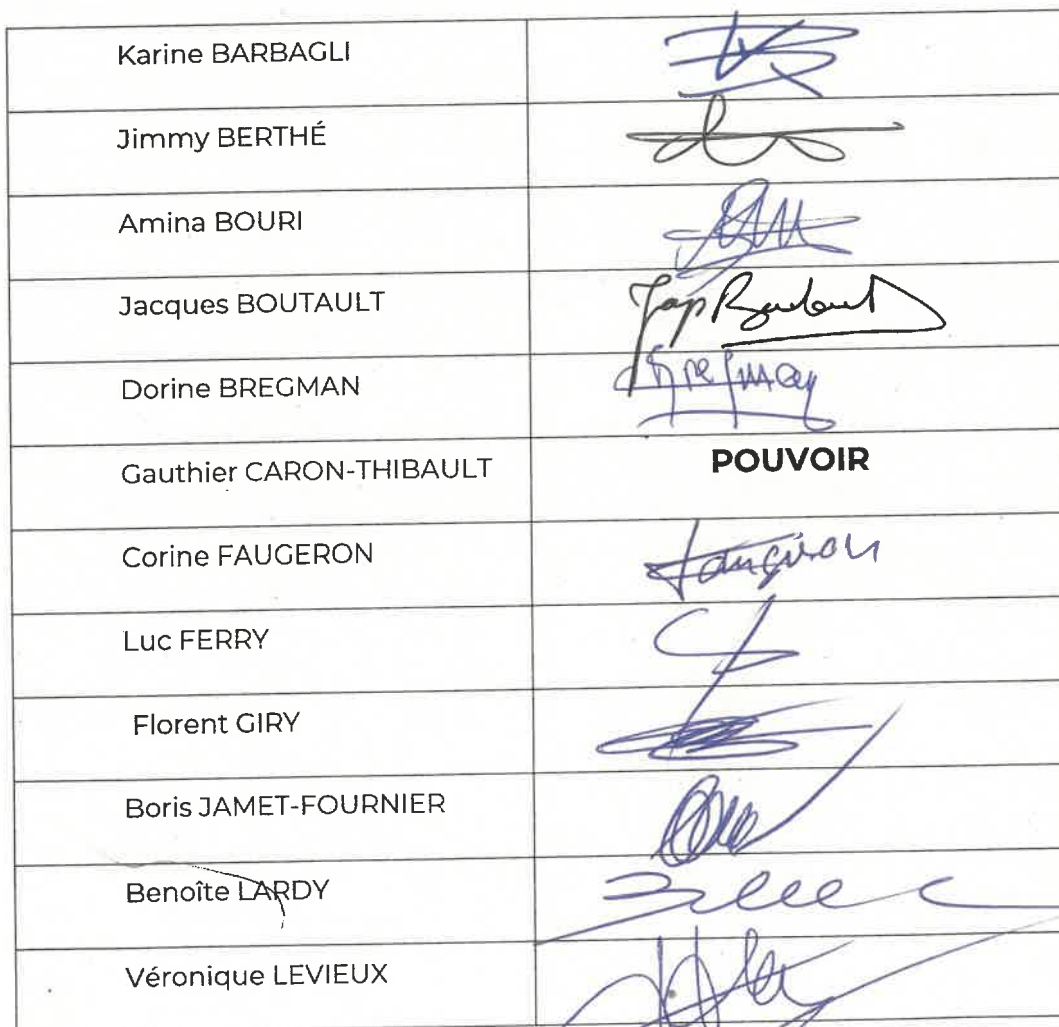 Karine BARBAGLI
Jimmy BERTHÉ
Amina BOURI
Jacques BOUTAULT
Dorine BREGMAN
Gauthier CARON-THIBAULT POUVOIR
Corine FAUGERON
Faugeron
Luc FERRY
Florent GIRY
Boris JAMET-FOURNIER
Benoîte LARDY
Véronique LEVIEUX